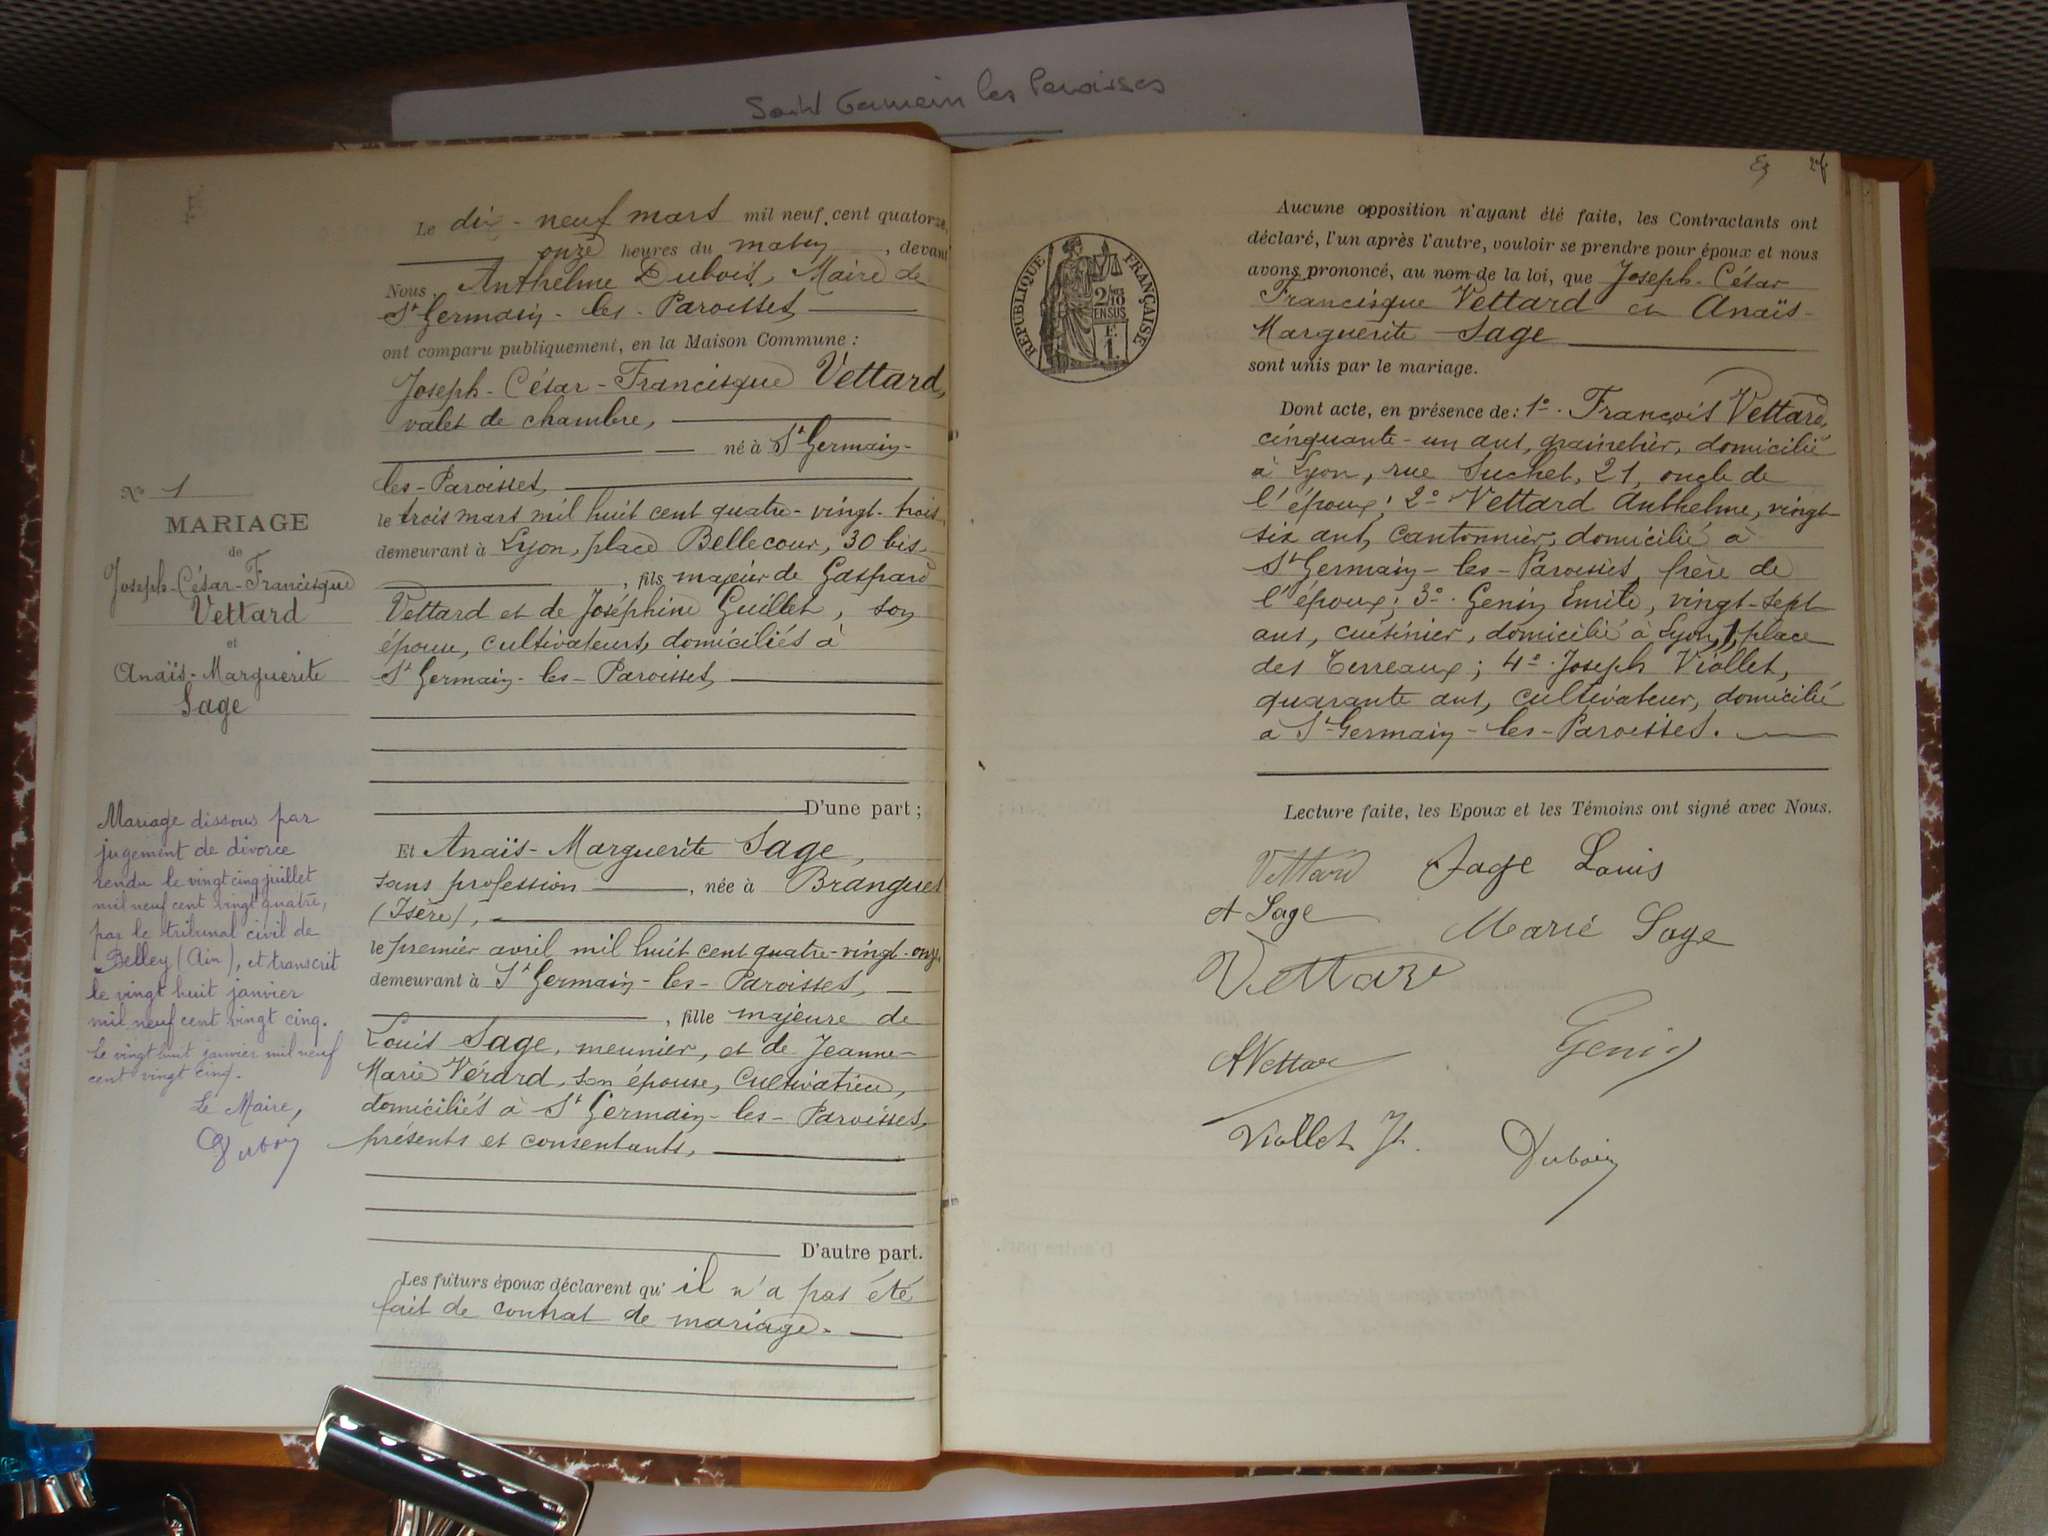 Saint Germain les Paroisses
N° 1
MARIAGE
de
Joseph-César-Francisque
Vettard
et
Anaïs-Marguerite
Sage
Mariage dissous par
jugement de divorce
rendu le vingt cinq juillet
mil neuf cent vingt quatre,
par le tribunal civil de
Belley (Ain), et transcrit
le vingt huit janvier
mil neuf cent vingt cinq.
Le vingt huit janvier mil neuf
cent vingt cinq.
Le Maire,
Dubois
Le dix-neuf mars mil neuf cent quatorze,
onze heures du matin, devant
Nous, Anthelme Dubois, Maire de
St Germain-les-Paroisses
ont comparu publiquement, en la Maison Commune :
Joseph-César-Francisque Vettard,
valet de chambre,
né à St Germain-
les-Paroisses,
le trois mars mil huit cent quatre-vingt-trois,
demeurant à Lyon, place Bellecour, 30 bis,
, fils majeur de Gaspard
Vettard et de Joséphine Guillet, son
épouse, cultivateurs, domiciliés à
St Germain-les-Paroisses,
D'une part ;
Et Anaïs-Marguerite Sage,
sans profession, née à Brangues
(Isère),
le premier avril mil huit cent quatre-vingt-onze,
demeurant à St Germain-les-Paroisses,
, fille majeure de
Louis Sage, meunier, et de Jeanne-
Marie Vérard, son épouse, cultivatrice,
domiciliés à St Germain-les-Paroisses,
présents et consentants,
D'autre part.
Les futurs époux déclarent qu'il n'a pas été
fait de contrat de mariage.
RÉPUBLIQUE FRANÇAISE
2/10
EN SUS
Aucune opposition n'ayant été faite, les Contractants ont
déclaré, l'un après l'autre, vouloir se prendre pour époux et nous
avons prononcé, au nom de la loi, que Joseph-César
Francisque Vettard et Anaïs-
Marguerite Sage
sont unis par le mariage.
Dont acte, en présence de : 1°. François Vettard,
cinquante-un ans, grainetier, domicilié
à Lyon, rue Suchet, 21, oncle de
l'époux ; 2° Vettard Anthelme, vingt-
six ans, cantonnier, domicilié à
St Germain-les-Paroisses, frère de
l'époux ; 3°. Genin Emile, vingt-sept
ans, cuisinier, domicilié à Lyon, 1, place
des Terreaux ; 4°. Joseph Viallet,
quarante ans, cultivateur, domicilié
à St Germain-les-Paroisses.
Lecture faite, les Epoux et les Témoins ont signé avec Nous.
Vettard Sage Louis
A Sage Marie Sage
Vettard
A Vettar Genin
Viallet Jh. Dubois